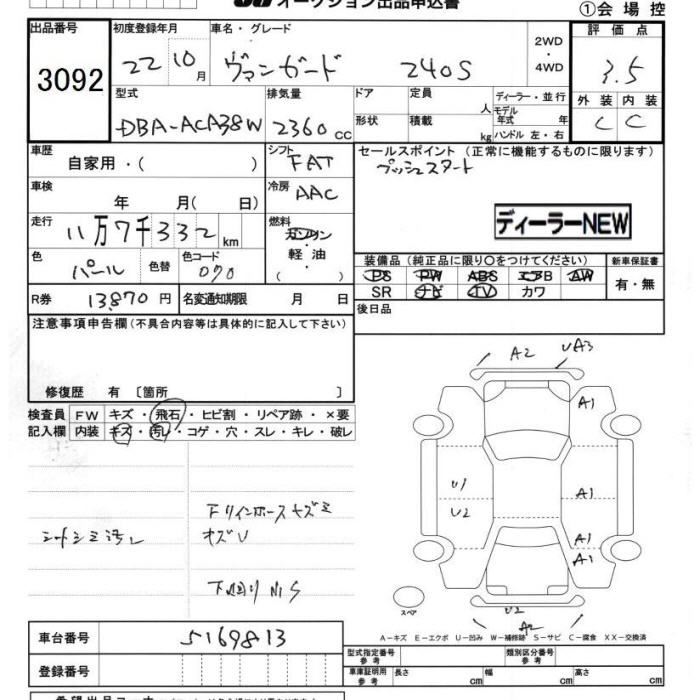 オークション出品申込書
①会場控
出品番号 初度登録年月 車名・グレード 評価点
3092 22 10月 ヴァンガード 240S 2WD・4WD 3.5
型式 排気量 ドア 定員 人 ディーラー・並行 外装 内装
DBA-ACA38W 2360cc 形状 積載 kg モデル年式 年 ハンドル 左・右 C C
車歴 自家用・( ) シフト FAT セールスポイント (正常に機能するものに限ります)
プッシュスタート
車検 年 月( 日) 冷房 AAC
走行 11万7千332km 燃料 ガソリン 軽油 ( )
ディーラーNEW
色 パール 色替 色コード 070
装備品(純正品に限り○をつけてください) 新車保証書
PS PW ABS エアB AW 有・無
SR ナビ TV カワ
R券 13,870円 名変通知期限 月 日
後日品
注意事項申告欄(不具合内容等は具体的に記入して下さい)
修復歴 有 〔箇所 〕
検査員 FW キズ・飛石・ヒビ割・リペア跡・×要
記入欄 内装 キズ・汚レ・コゲ・穴・スレ・キレ・破レ
A2 UA3
A1
U1 A1
U2
シートシミ汚レ
A1
A1
下回り小S
スペア
U2
A2
A－キズ E－エクボ U－凹み W－補修跡 S－サビ C－腐食 XX－交換済
車台番号 5169813
登録番号
型式指定番号 参考 類別区分番号 参考
車庫証明用 参考 長さ cm 幅 cm 高さ cm